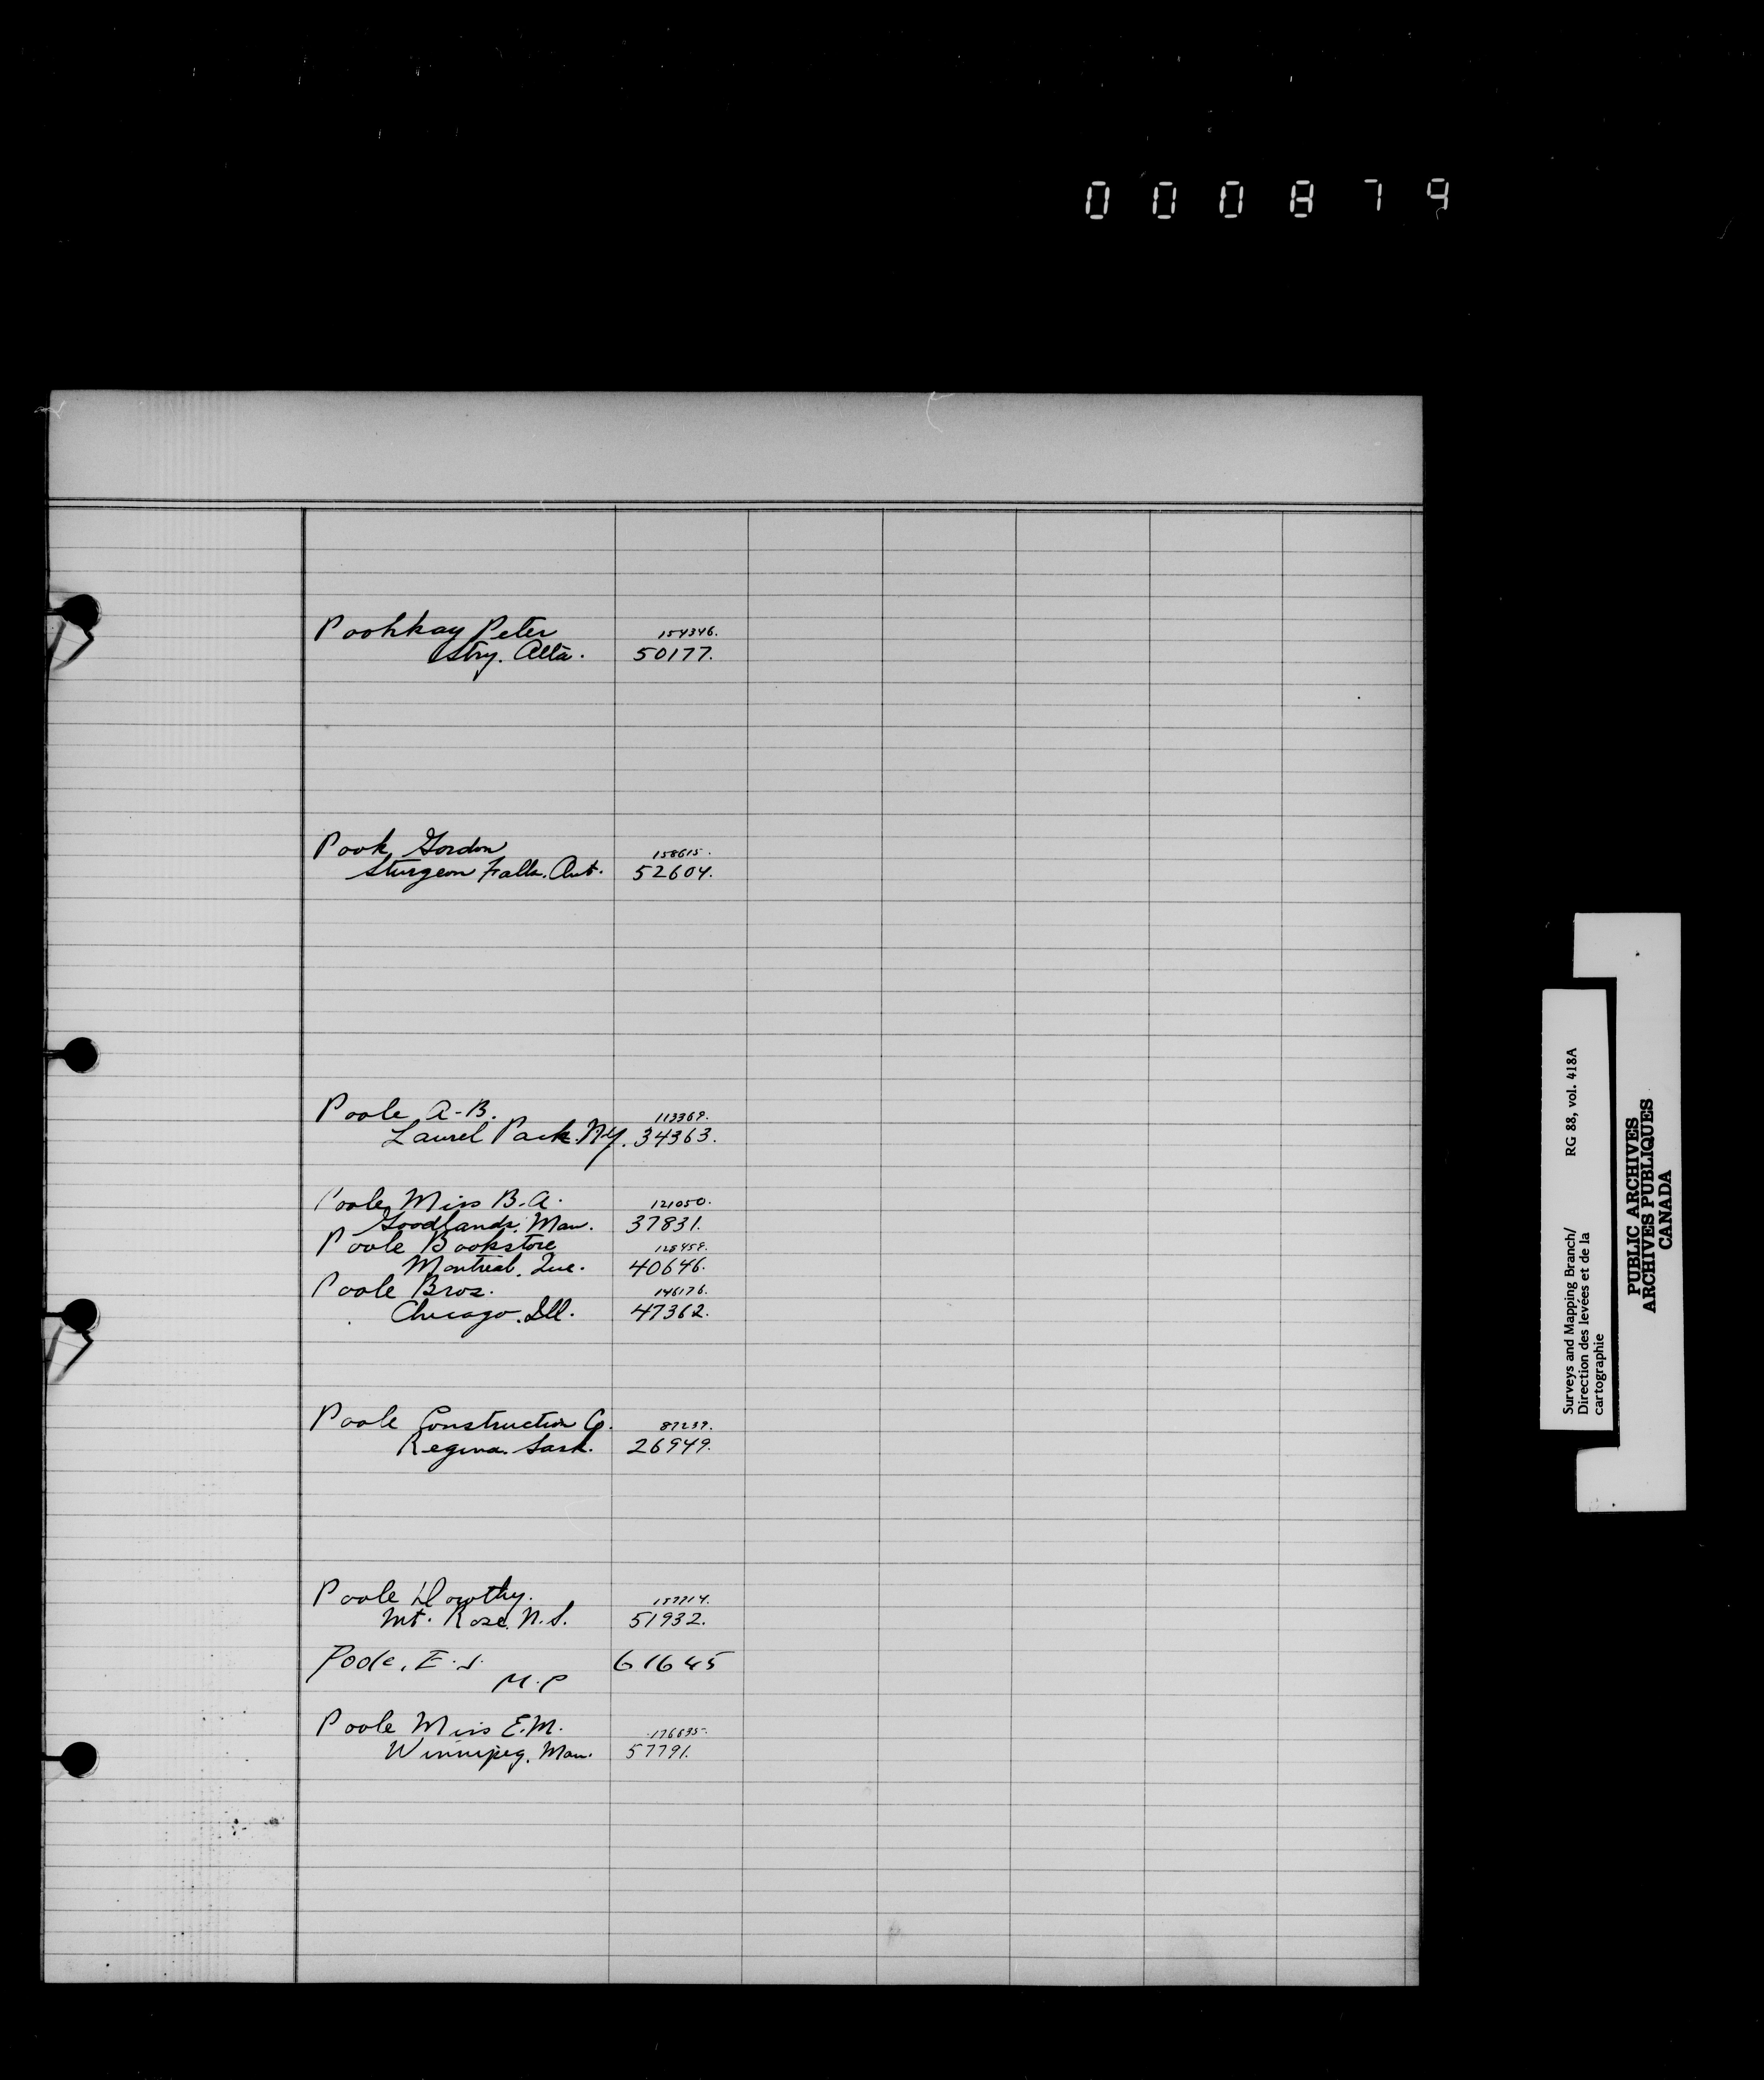 000879
Poohkay Peter 154346.
Stry. Alta. 50177.
Pook, Gordon 158615.
Sturgeon Falls. Ont. 52604.
Poole, A-B. 113369.
Laurel Park. N.Y. 34363.
Poole, Miss B.A. 121050.
Goodlands, Man. 37831.
Poole Bookstore 128459.
Montreal. Que. 40646.
Poole Bros. 146176.
Chicago. Ill. 47362.
Poole Construction Co. 87239.
Regina. Sask. 26949.
Poole Dorothy.
Mt. Rose, N.S. 51932.
Poole, E.J. 61645
M.P
Poole Miss E.M. 176835.
Winnipeg, Man. 57791.
Surveys and Mapping Branch/ RG 88, vol. 418A
Direction des levées et de la
cartographie
PUBLIC ARCHIVES
ARCHIVES PUBLIQUES
CANADA